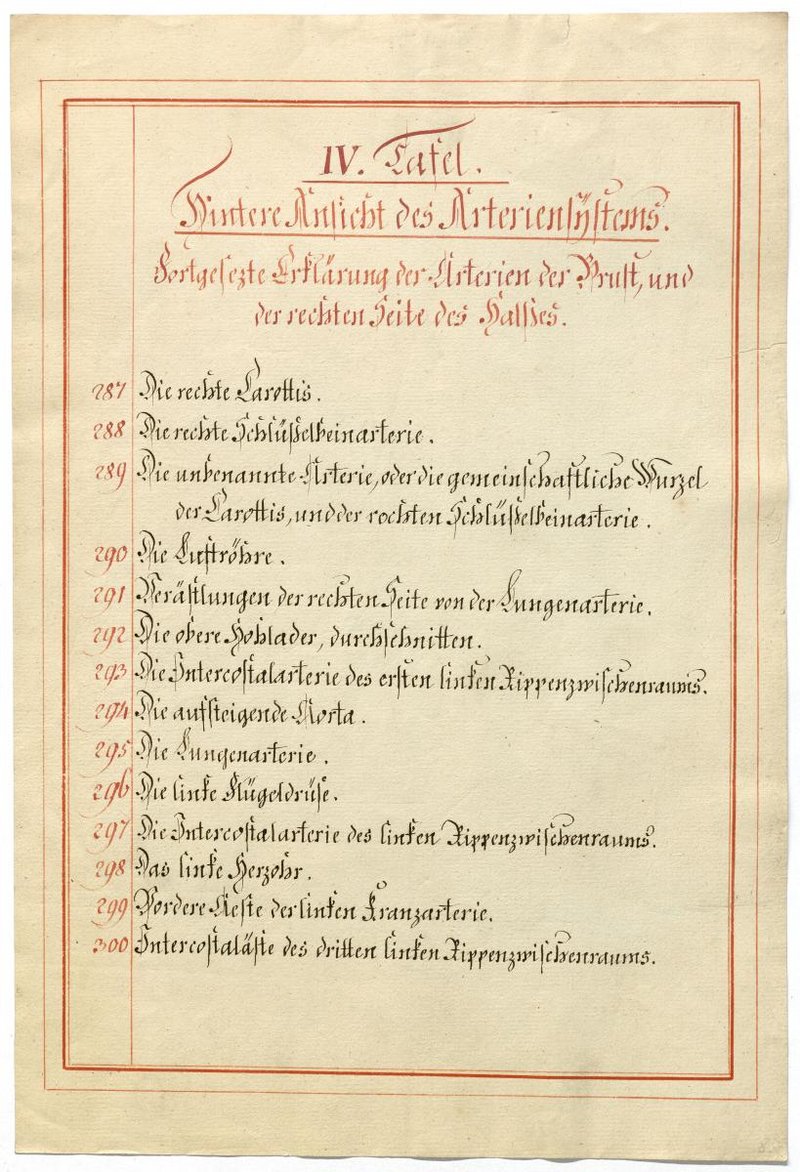 IV. Tafel.
Hintere Ansicht des Arteriensystems.
Fortgesezte Erklärung der Arterien der Brust, und
der rechten Seite des Halses.
287 Die rechte Carottis.
288 Die rechte Schlüßelbeinarterie.
289 Die unbenannte Arterie, oder die gemeinschaftliche Wurzel
der Carottis, und der rechten Schlüßelbeinarterie.
290 Die Luftröhre.
291 Verästlungen der rechten Seite von der Lungenarterie.
292 Die obere Hohlader, durchschnitten.
293 Die Intercostalarterie des ersten linken Rippenzwischenraums.
294 Die aufsteigende Aorta.
295 Die Lungenarterie.
296 Die linke Flügeldrüse.
297 Die Intercostalarterie des linken Rippenzwischenraums.
298 Das linke Herzohr.
299 Vordere Aeste der linken Kranzarterie.
300 Intercostaläste des dritten linken Rippenzwischenraums.